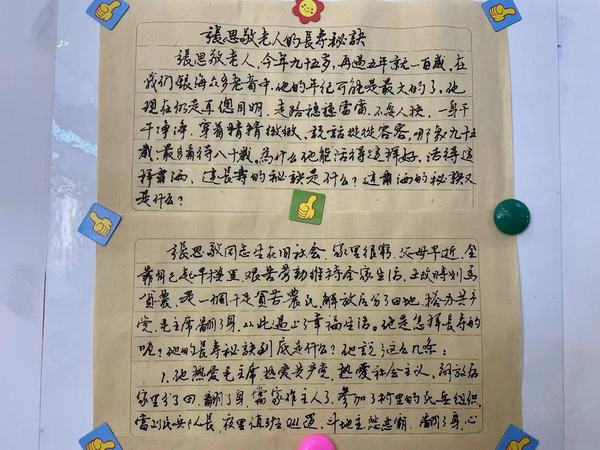 張思敬老人的長寿秘訣
張思敬老人,今年九十五多,再過五年就一百歲,在
我们银海众多老者中,他的年纪可能是最大的了。他
現在仍是耳聪目明,走路穩穩當當,不要人扶,一身干
干净净,穿着精精緻緻、說話從從容容,那象九十五
歲,最多看待八十歲。為什么他能活得這样好,活得這
样肅洒,這長壽的秘訣是什么?這肅洒的秘訣又
是什么?
張思敬同志生在旧社会,家里很窮,父母早逝,全
靠自己起早摸黑,艰苦劳動维持全家生活,土改時划为
貧農,是一個十足貧苦農民,解放后分了田地,拾分共產
党,毛主席翻了身,从此過上了幸福生活。他是怎样長寿的
呢?他的長寿秘訣到底是什么?他說了這么几条:
1.他熱爱毛主席,熱爱共產党,熱爱社会主义,解放后
家里分了田,翻了身,當家作主人了,參加了村里的民兵组织,
當了民兵队長,夜里值班巡邏,斗地主,惩恶霸,翻了身,心